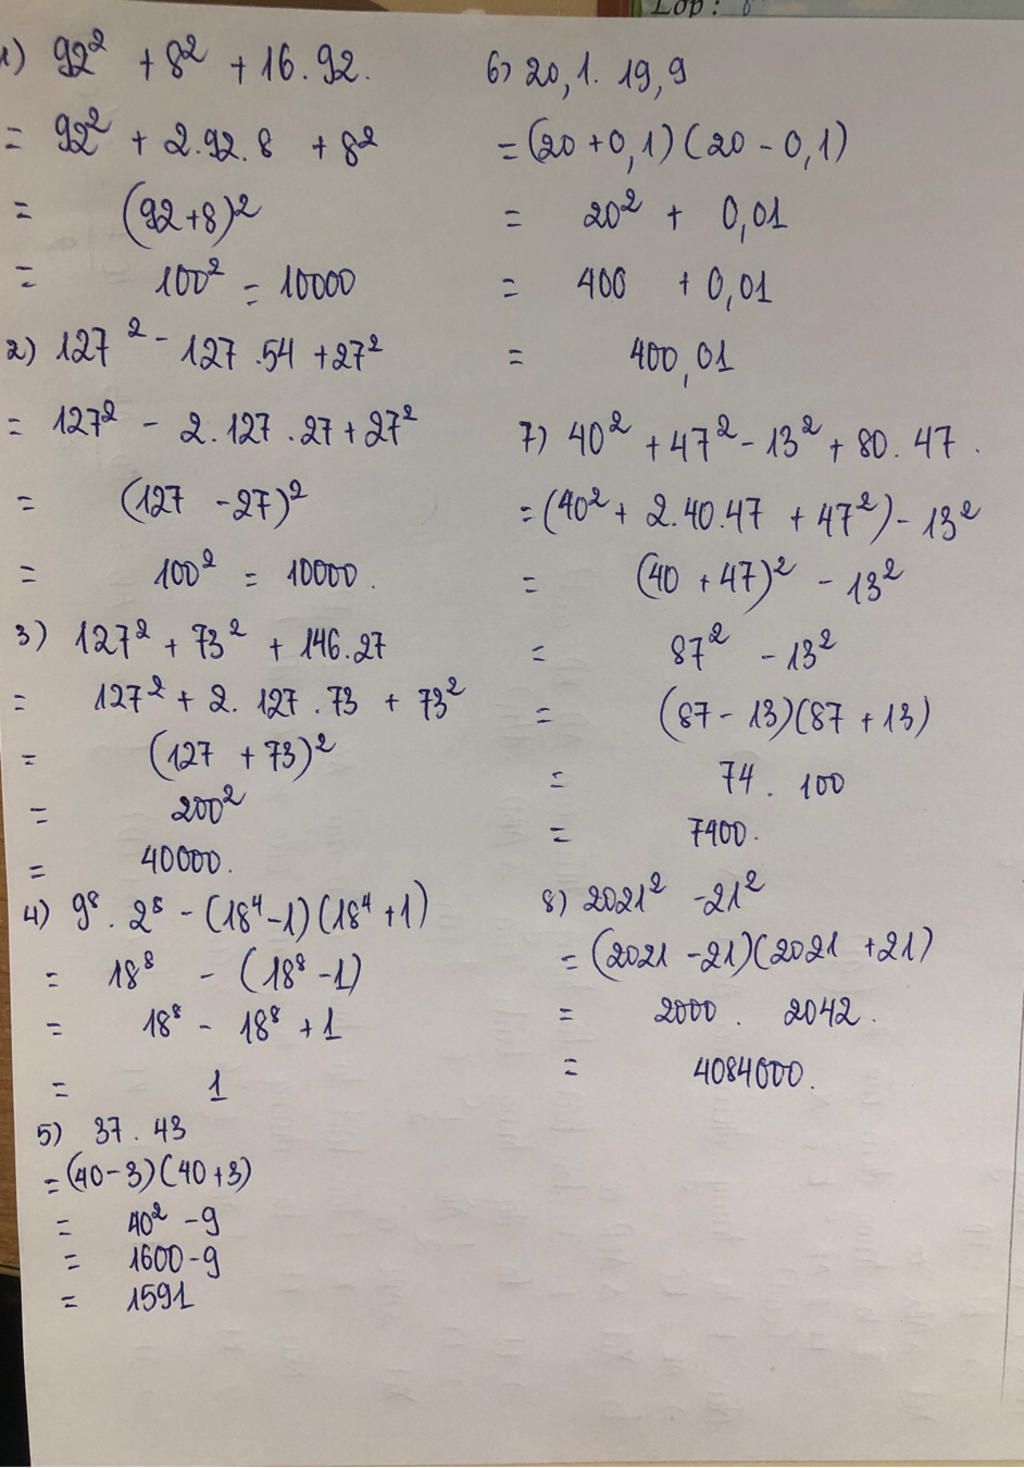 Lớp : 8
1) 92² + 8² + 16 . 92 .
= 92² + 2.92.8 + 8²
= (92+8)²
= 100² = 10000
2) 127² - 127 .54 + 27²
= 127² - 2.127 .27 + 27²
= (127 - 27)²
= 100² = 10000 .
3) 127² + 73² + 146.27
= 127² + 2. 127 .73 + 73²
= (127 + 73)²
= 200²
= 40000.
4) 9⁸ . 2⁸ - (18⁴-1)(18⁴+1)
= 18⁸ - (18⁸ -1)
= 18⁸ - 18⁸ + 1
= 1
5) 37 . 43
= (40-3)(40+3)
= 40² - 9
= 1600 - 9
= 1591
6) 20,1. 19,9
= (20 + 0,1)(20 - 0,1)
= 20² + 0,01
= 400 + 0,01
= 400,01
7) 40² + 47² - 13² + 80. 47 .
= (40² + 2.40.47 + 47²) - 13²
= (40 + 47)² - 13²
= 87² - 13²
= (87 - 13)(87 + 13)
= 74 . 100
= 7400 .
8) 2021² - 21²
= (2021 - 21)(2021 + 21)
= 2000 . 2042 .
= 4084000.